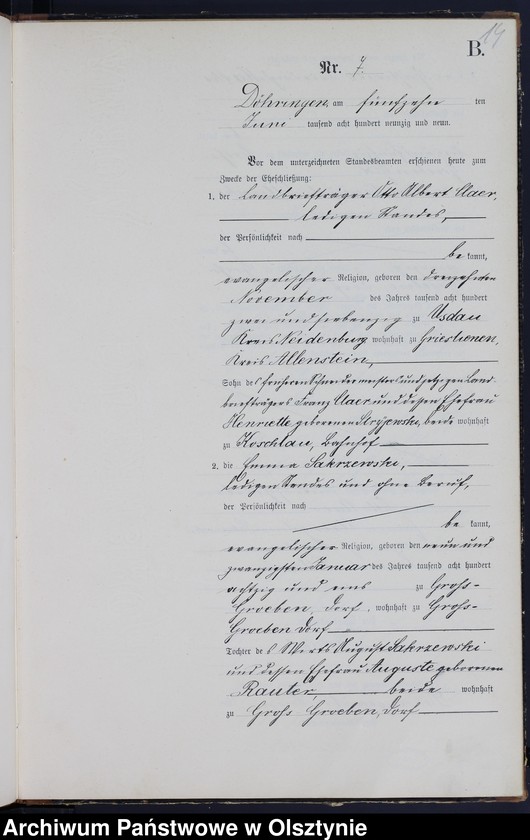 14
B.
Nr. 7.
Döhringen, am fünfzehn ten
Juni tausend acht hundert neunzig und neun.
Vor dem unterzeichneten Standesbeamten erschienen heute zum
Zwecke der Eheschließung:
1. der Landbriefträger Otto Albert
ledigen Standes,
der Persönlichkeit nach
be kannt,
evangelischer Religion, geboren den dreizehnten
November des Jahres tausend acht hundert
zwei und siebenzig zu Usdau
Kreis Neidenburg wohnhaft zu
Kreis Allenstein,
Sohn des früheren Schneidermeisters und jetzigen Land-
briefträgers Franz und dessen Ehefrau
Henriette geborenen beide wohnhaft
zu Koschlau, Bahnhof
2. die Emma Sakrzewski,
ledigen Standes und ohne Beruf,
der Persönlichkeit nach
be kannt,
evangelischer Religion, geboren den neun und
zwanzigsten Januar des Jahres tausend acht hundert
achtzig und eins zu Groß-
Groeben, Dorf, wohnhaft zu Groß-
Groeben Dorf
Tochter des Wirts August Sakrzewski
und dessen Ehefrau Auguste geborenen
Rauter, beide wohnhaft
zu Groß Groeben, Dorf
Archiwum Państwowe w Olsztynie